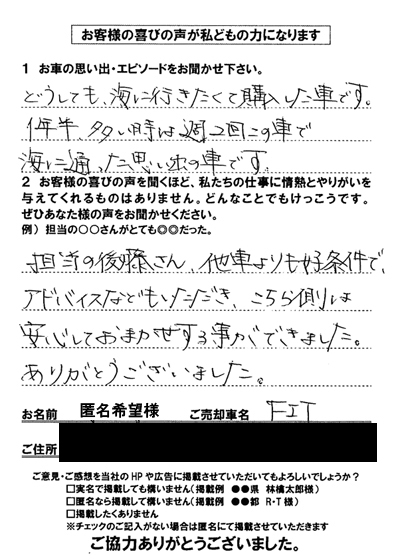 お客様の喜びの声が私どもの力になります
1 お車の思い出・エピソードをお聞かせ下さい。
どうしても、海に行きたくて購入した車です。
1年半、多い時は週2回この車で
海に通った思い出の車です。
2 お客様の喜びの声を聞くほど、私たちの仕事に情熱とやりがいを
与えてくれるものはありません。どんなことでもけっこうです。
ぜひあなた様の声をお聞かせください。
例）担当の○○さんがとても◎◎だった。
担当の後藤さん、他車よりも好条件で、
アドバイスなどもいただき、こちら側は
安心しておまかせする事ができました。
ありがとうございました。
お名前 匿名希望様 ご売却車名 FIT
ご住所
ご意見・ご感想を当社のHPや広告に掲載させていただいてもよろしいでしょうか？
□実名で掲載しても構いません（掲載例 ●●県 林檎太郎様）
□匿名なら掲載しても構いません（掲載例 ●●都 R・T様）
□掲載したくありません
※チェックのご記入がない場合は匿名にて掲載させていただきます
ご協力ありがとうございました。